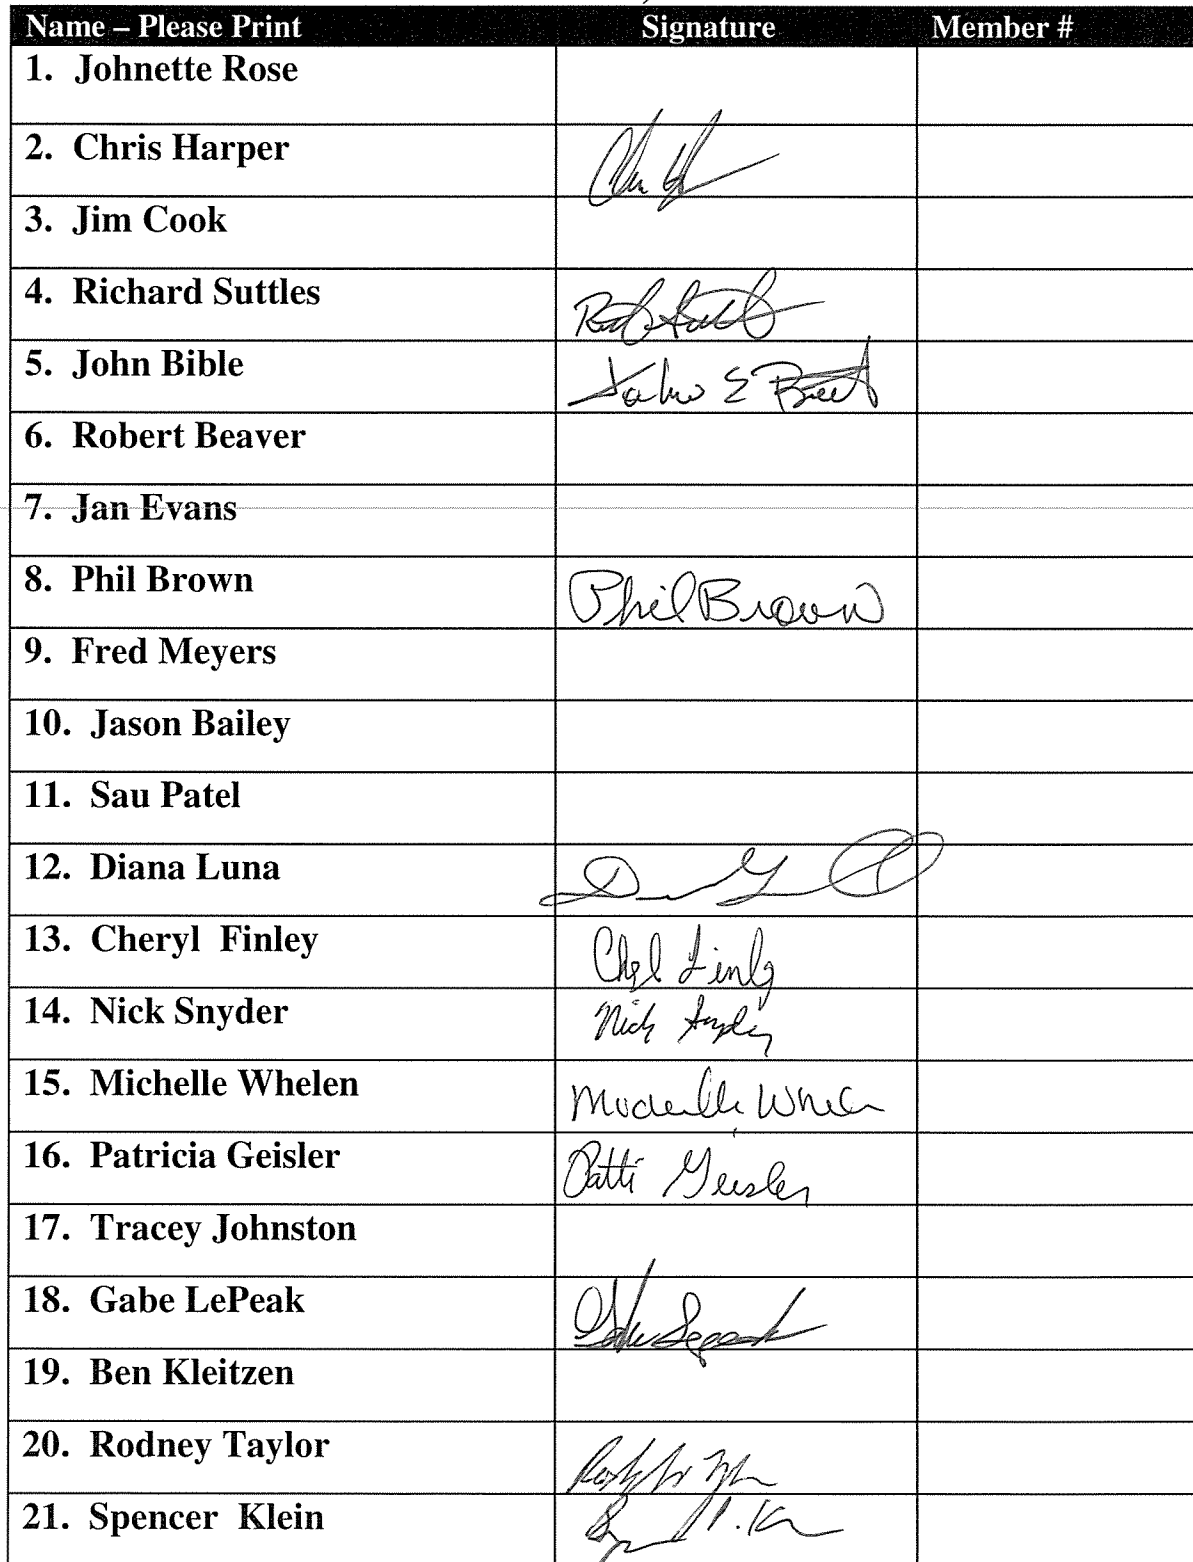 Name – Please Print Signature Member #
1. Johnette Rose
2. Chris Harper
3. Jim Cook
4. Richard Suttles
5. John Bible
6. Robert Beaver
7. Jan Evans
8. Phil Brown Phil Brown
9. Fred Meyers
10. Jason Bailey
11. Sau Patel
12. Diana Luna
13. Cheryl Finley
14. Nick Snyder Nick Snyder
15. Michelle Whelen
16. Patricia Geisler Patti Geisler
17. Tracey Johnston
18. Gabe LePeak
19. Ben Kleitzen
20. Rodney Taylor
21. Spencer Klein